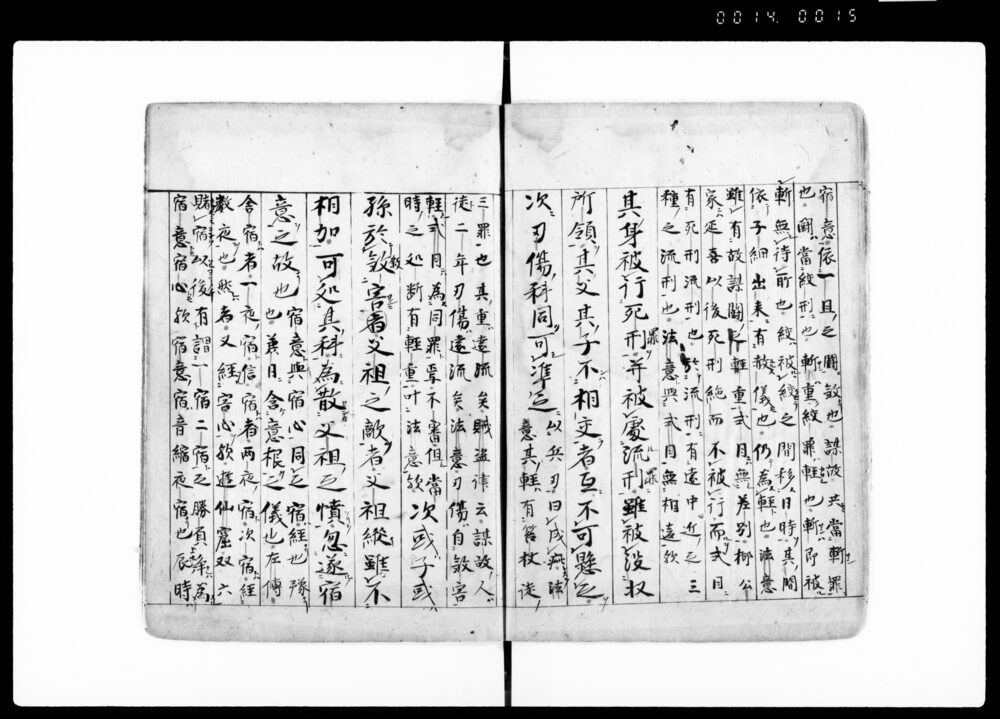 0014. 0015
宿意依一旦之闘殺也謀故共當斬罪
也闘當絞刑也斬重絞罪輕也斬即被
斬無待前也絞被絞之間移日時其間
依子細出来有赦儀也仍為輕也法意
雖有故謀闘輕重式目無差別梛公
家延喜以後死刑絶而不被行而式目
有死刑流刑也於流刑有遠中近之三
種之流刑也法意與式目無相違歟
其身被行死刑罪并被處流刑罪雖被没収
所領其父其子不相交者互不可懸之
次刃傷科同可准之以兵刃曰成法
意其輕有笞杖徒
三罪也其重遠流矣賊盗律云謀故人
徒二年刃傷遠流矣法意刃傷自殺害
輕式目為同罪事不審但當
時之処断有輕重叶法意歟次或子或
孫於殺害者父祖之敵者父祖縱雖不
相加可処其科為散父祖之憤忽遂宿
意之故也宿意與宿心同之宿經也隊
也義曰含意根之儀也左傳
舎宿者一夜宿信宿者兩夜宿次宿經
數夜也然者又經害心歟遊仙窟双六
賭宿以後有謂一宿二宿之勝負為
宿意宿心歟宿意宿音縮夜宿也辰時